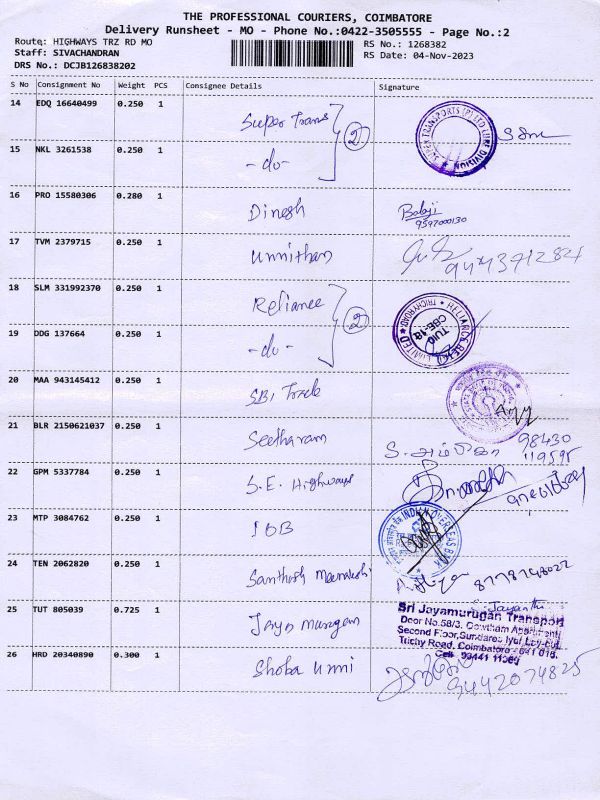 THE PROFESSIONAL COURIERS, COIMBATORE
Delivery Runsheet - MO - Phone No.:0422-3505555 - Page No.:2
Route: HIGHWAYS TRZ RD MO
RS No.: 1268382
Staff: SIVACHANDRAN
RS Date: 04-Nov-2023
DRS No.: DCJB126838202
S No Consignment No Weight PCS Consignee Details Signature
14 EDQ 16640499 0.250 1 Super Trans
15 NKL 3261538 0.250 1 -do- 2
16 PRO 15580306 0.280 1 Dinesh Balaji
9597000130
17 TVM 2379715 0.250 1 Unnithan
18 SLM 331992370 0.250 1 Reliance
19 DDG 137664 0.250 1 -do- 2
20 MAA 943145412 0.250 1 SBI Trade
21 BLR 2150621037 0.250 1 Seetharam 98430
119595
22 GPM 5337784 0.250 1 S.E. Highways
23 MTP 3084762 0.250 1 IOB
24 TEN 2062820 0.250 1 Santhosh Meenakshi 8778748022
25 TUT 805039 0.725 1 Jaya Murugan
Sri Jayamurugan Transport
Door No.58/3, Gowtham Apartment
Second Floor,
Trichy Road, Coimbatore - 641 018.
26 HRD 20340890 0.300 1 Shoba Unni 9442074825